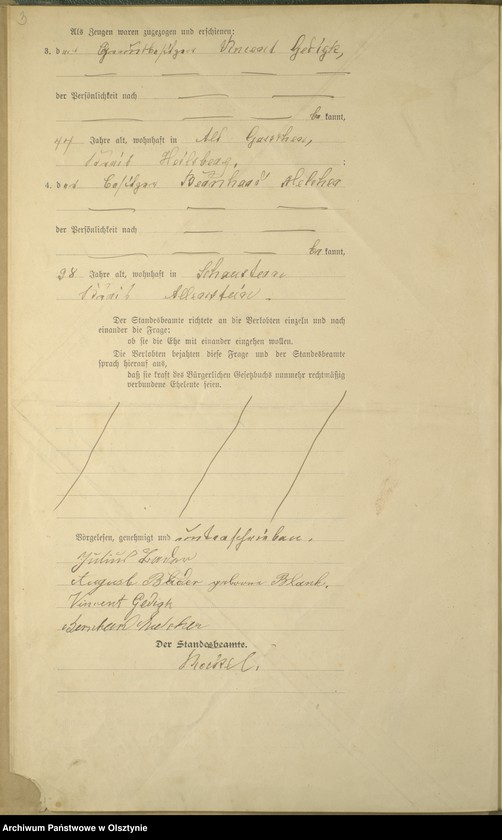 3
Als Zeugen waren zugezogen und erschienen:
3. der Grundbesitzer Vincent Gedigk,
der Persönlichkeit nach
be kannt,
44 Jahre alt, wohnhaft in Alt Garschen,
Kreis Heilsberg. ;
4. der Besitzer Bernhard Melcher
der Persönlichkeit nach
be kannt,
38 Jahre alt, wohnhaft in Schaustern
Kreis Allenstein.
Der Standesbeamte richtete an die Verlobten einzeln und nach
einander die Frage:
ob sie die Ehe mit einander eingehen wollen.
Die Verlobten bejahten diese Frage und der Standesbeamte
sprach hierauf aus,
daß sie kraft des Bürgerlichen Gesetzbuchs nunmehr rechtmäßig
verbundene Eheleute seien.
Vorgelesen, genehmigt und unterschrieben.
Julius
August geborene Blank.
Vincent Gedigk
Bernhard Melcher
Der Standesbeamte.
Archiwum Państwowe w Olsztynie